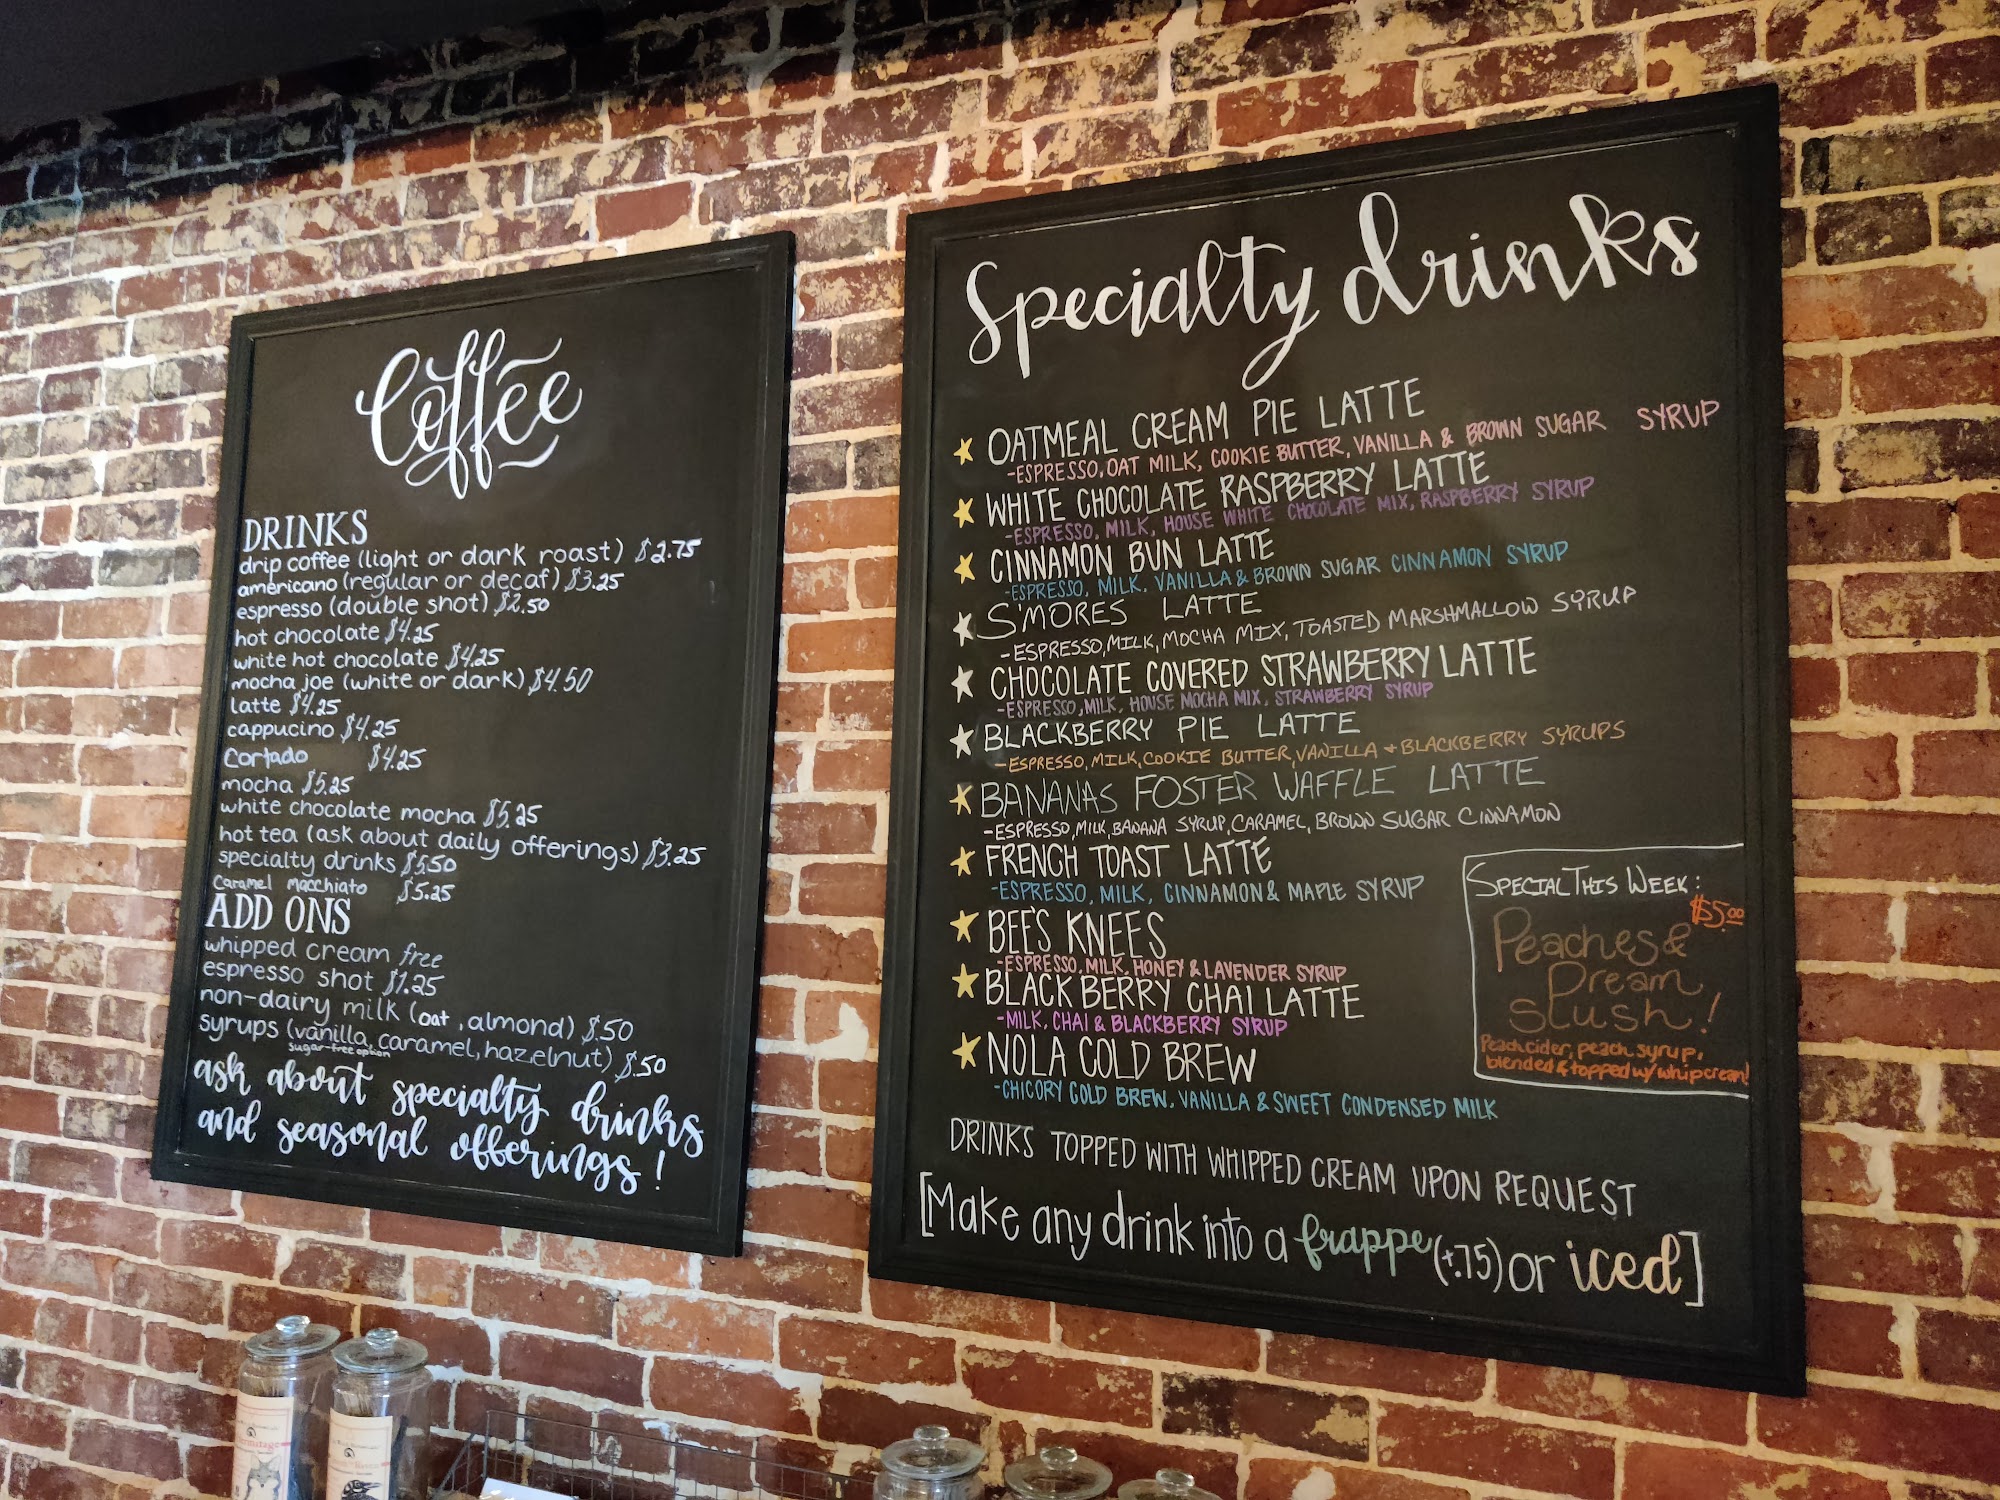 Coffee
DRINKS
drip coffee (light or dark roast) $2.75
americano (regular or decaf) $3.25
espresso (double shot) $2.50
hot chocolate $4.25
white hot chocolate $4.25
mocha joe (white or dark) $4.50
latte $4.25
cappucino $4.25
Cortado $4.25
mocha $5.25
white chocolate mocha $5.25
hot tea (ask about daily offerings) $3.25
specialty drinks $5.50
Caramel macchiato $5.25
ADD ONS
whipped cream free
espresso shot $1.25
non-dairy milk (oat, almond) $.50
syrups (vanilla, caramel, hazelnut) $.50
sugar-free option
ask about specialty drinks
and seasonal offerings!
Specialty drinks
OATMEAL CREAM PIE LATTE
-ESPRESSO, OAT MILK, COOKIE BUTTER, VANILLA & BROWN SUGAR SYRUP
WHITE CHOCOLATE RASPBERRY LATTE
-ESPRESSO, MILK, HOUSE WHITE CHOCOLATE MIX, RASPBERRY SYRUP
CINNAMON BUN LATTE
-ESPRESSO, MILK, VANILLA & BROWN SUGAR CINNAMON SYRUP
S'MORES LATTE
-ESPRESSO, MILK, MOCHA MIX, TOASTED MARSHMALLOW SYRUP
CHOCOLATE COVERED STRAWBERRY LATTE
-ESPRESSO, MILK, HOUSE MOCHA MIX, STRAWBERRY SYRUP
BLACKBERRY PIE LATTE
-ESPRESSO, MILK, COOKIE BUTTER, VANILLA + BLACKBERRY SYRUPS
BANANAS FOSTER WAFFLE LATTE
-ESPRESSO, MILK, BANANA SYRUP, CARAMEL, BROWN SUGAR CINNAMON
FRENCH TOAST LATTE
-ESPRESSO, MILK, CINNAMON & MAPLE SYRUP
BEE'S KNEES
-ESPRESSO, MILK, HONEY & LAVENDER SYRUP
BLACKBERRY CHAI LATTE
-MILK, CHAI & BLACKBERRY SYRUP
NOLA COLD BREW
-CHICORY COLD BREW, VANILLA & SWEET CONDENSED MILK
SPECIAL THIS WEEK:
$5.00
Peaches &
Dream
Slush!
Peach cider, peach syrup,
blended & topped w/ whipcream!
DRINKS TOPPED WITH WHIPPED CREAM UPON REQUEST
[Make any drink into a frappe (+.75) or iced]